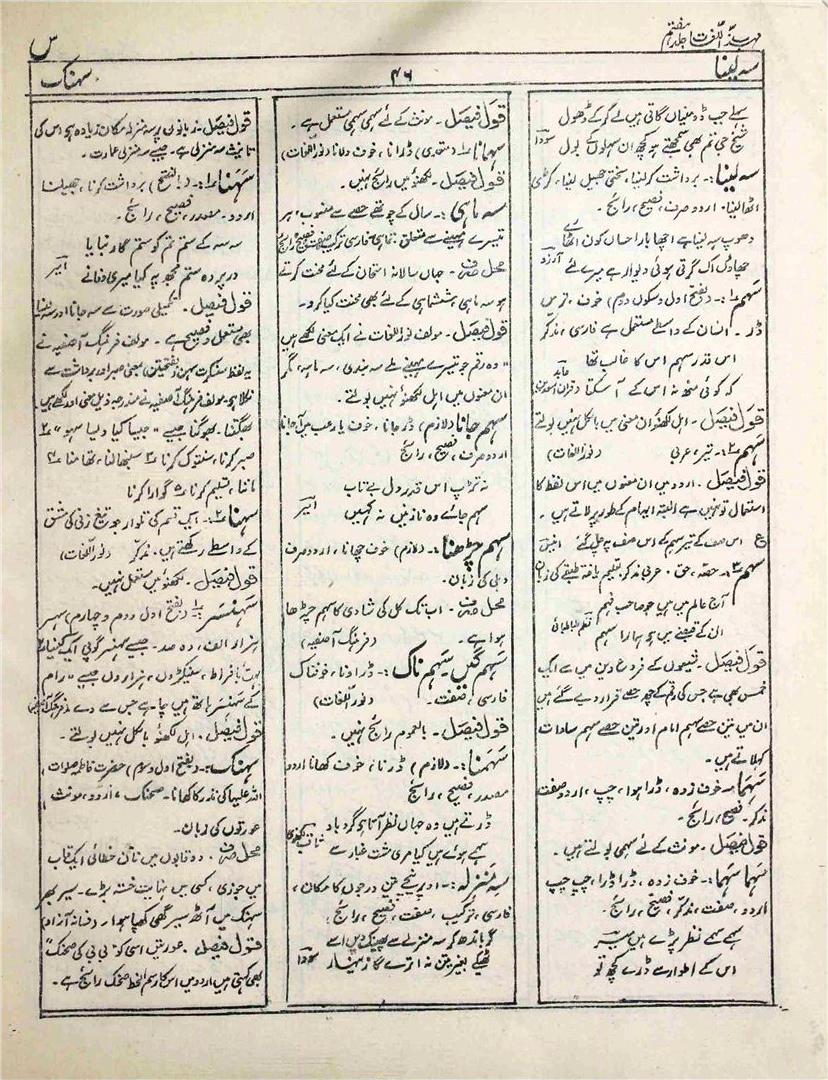 مہذب اللغات جلد ہفتم
س
سہ لینا
۴۶
سہنک
سہلے جب ڈومنیاں گاتی ہیں لے کر کے ڈھول
شیخ جی تم بھی سمجھتے ہو کچھ ان سہلوں کے بول سودا
سہ لینا:۔ برداشت کر لینا، سختی جھیل لینا، کڑی
اٹھا لینا۔ اردو صرف، فصیح، رائج۔
دھوپ سہ لینا ہے اچھا بار احساں کون اٹھائے
پھاند اک گرتی ہوئی دیوار ہے میرے لئے آرزو
سہم ۱:۔ (بفتح اول و سکون دوم) خوف، ترس
ڈر۔ انسان کے واسطے مستعمل ہے فارسی، مذکر
اس قدر سہم اس کا غالب تھا
کہ کوئی منھ نہ اس کے آ سکتا
قول فیصل۔ اہل لکھنؤ ان معنی میں بالکل نہیں بولتے
سہم ۲:۔ تیر، عربی (نور اللغات)
قول فیصل۔ اردو میں ان معنوں میں اس لفظ کا
استعمال تو نہیں ہے البتہ ایہام کے طور پر لاتے ہیں۔
ع اس صف کے تیر سہم کے اس صف پہ چل گئے انیس
سہم ۳:۔ حصہ، حق۔ عربی مذکر، تعلیم یافتہ طبقے کی زبان
آج عالم میں ہیں جو صاحب فہم
ان کے قبضے میں ہو ہمارا سہم نظم طباطبائی
قول فیصل۔ شیعوں کے فروع دین میں سے ایک
خمس بھی ہے جس کی رقم کے چھ حصے قرار دیے گئے ہیں
ان میں تین حصے سہم امام اور تین حصے سہم سادات
کہلاتے ہیں۔
سہما:۔ خوف زدہ، ڈرا ہوا، چپ، اردو صفت
مذکر۔ فصیح، رائج۔
قول فیصل۔ مونث کے لئے سہمی بولتے ہیں۔
سہما سہما:۔ خوف زدہ، ڈرا ڈرا، چپ چپ
اردو، صفت، مذکر، فصیح، رائج۔
سہمے سہمے نظر پڑے ہیں میر
اس کے اطوار سے ڈرے کچھ تو
قول فیصل۔ مونث کے لئے سہمی سہمی مستعمل ہے۔
سہمانا:۔ (متعدی) ڈرانا، خوف دلانا (نور اللغات)
قول فیصل۔ لکھنؤ میں رائج نہیں۔
سہ ماہی:۔ سال کے چوتھے حصے سے منسوب، ہر
تیسرے مہینے سے متعلق، تماہی، فارسی ترکیب، صفت، فصیح، رائج
محل صرف۔ جہاں سالانہ امتحان کے لئے محنت کرتے
ہو سہ ماہی، ششماہی کے لئے بھی محنت کیا کرو۔
قول فیصل۔ مولف نور اللغات نے ایک معنی لکھے ہیں
"وہ رقم جو تیسرے مہینے ملے سہ بندی، سہ ماہہ، مگر
ان معنوں میں اہل لکھنؤ نہیں بولتے۔
سہم جانا (لازم) ڈر جانا، خوف یا رعب میں آ جانا
اردو صرف، فصیح، رائج
نہ تڑپ اس قدر دل بے تاب
سہم جائے وہ نازنیں نہ کہیں امیر
سہم چڑھنا:۔ (لازم) خوف چھانا، اردو صرف
دہلی کی زبان۔
محل صرف۔ اب تک کل کی شادی کا سہم چڑھا
ہوا ہے۔ (فرہنگ آصفیہ)
سہم گیں۔ سہم ناک:۔ ڈراونا، خوفناک
فارسی، صفت۔ (نور اللغات)
قول فیصل۔ بالعموم رائج نہیں۔
سہمنا:۔ (لازم) ڈرنا، خوف کھانا اردو
مصدر، فصیح، رائج
ڈرتے ہیں وہ جہاں نظر آتا ہے گرد باد
سہمے ہوئے ہیں کیا مری مشت غبار سے ثاقب لکھنوی
سہ منزلہ:۔ اوپر نیچے تین درجوں کا مکان،
فارسی، ترکیب، صفت، فصیح، رائج۔
گر باندھ کر سہ منزلے سے پھینک دیں اسے
ٹھیکے بغیر تن نہ اترے گا زینہار سودا
قول فیصل۔ زبانوں پر سہ منزلہ مکان زیادہ ہے اور اس کی
تانیث سہ منزلی ہے۔ جیسے سہ منزلی عمارت۔
سہنا ۱:۔ (بالفتح) برداشت کرنا، جھیلنا
اردو۔ مصدر، فصیح، رائج۔
سہ سہ کے ستم تم کو ستم گار بنایا
در پردہ ستم مجھ پہ کیا میری وفا نے امیر
قول فیصل۔ تکمیلی صورت سے سہ جانا اور سہ لینا
بھی مستعمل و فصیح ہے۔ مولف فرہنگ آصفیہ نے
یہ لفظ سنسکرت سہن (بفتحتین) بمعنی صبر اور برداشت سے
نکلا ہے، مولف فرہنگ آصفیہ نے مندرجہ ذیل معنی اور لکھے ہیں
بھگتنا۔ بھوگنا جیسے "جیسا کیا ویسا سہو" ۲
صبر کرنا، سنتوک کرنا ۳ سنبھالنا، تھامنا ۴
ماننا، تسلیم کرنا ۵ گوارا کرنا
سہنا ۲:۔ ایک قسم کی تلوار جو تیغ زنی کی مشق
کے واسطے رکھتے ہیں۔ مذکر (نور اللغات)
قول فیصل۔ لکھنؤ میں مستعمل نہیں۔
سہنسر:۔ (بفتح اول و دوم و چہارم) سہسر
ہزار، الف، دہ صد۔ جیسے سہنسر گوپی ایک کنہیا
بہت، بافراط، سیکڑوں، ہزاروں جیسے "رام
کے سہنسر ہاتھ ہیں چاہے جس سے دے (فرہنگ آصفیہ)
قول فیصل۔ اہل لکھنؤ بالکل نہیں بولتے۔
سہنک:۔ (بفتح اول و سوم) حضرت فاطمہ صلوات
اللہ علیہا کی نذر کا کھانا۔ صحنک، اردو، مونث
عورتوں کی زبان۔
محل صرف۔ دو قابوں میں نان خطائی ایک قاب
میں جوزی، کسی میں نہایت خستہ بڑے۔ سیر بھر
سہنک میں آٹھ سیر گھی کھپا ہوا۔ (فسانہ آزاد)
قول فیصل۔ عورتیں اسی کو "بی بی کی صحنک"
بھی کہتی ہیں اردو میں اس کا رسم الخط صحنک رائج ہے۔